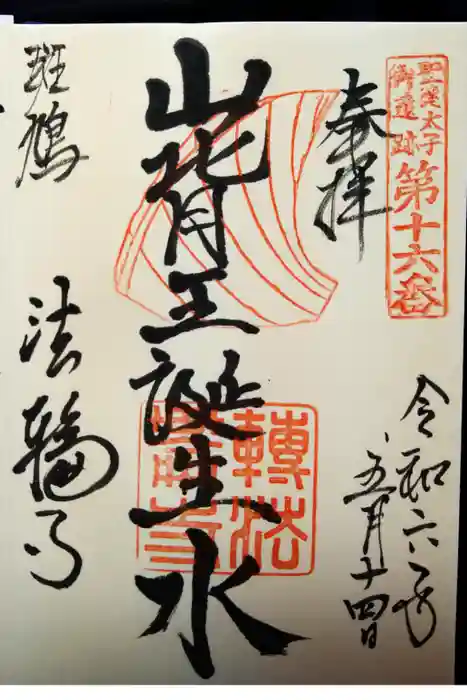 聖徳太子
御遺跡
第十六番
奉拝
令和六年
五月十四日
山背王誕生水
轉法
輪寺
斑鳩
法輪寺